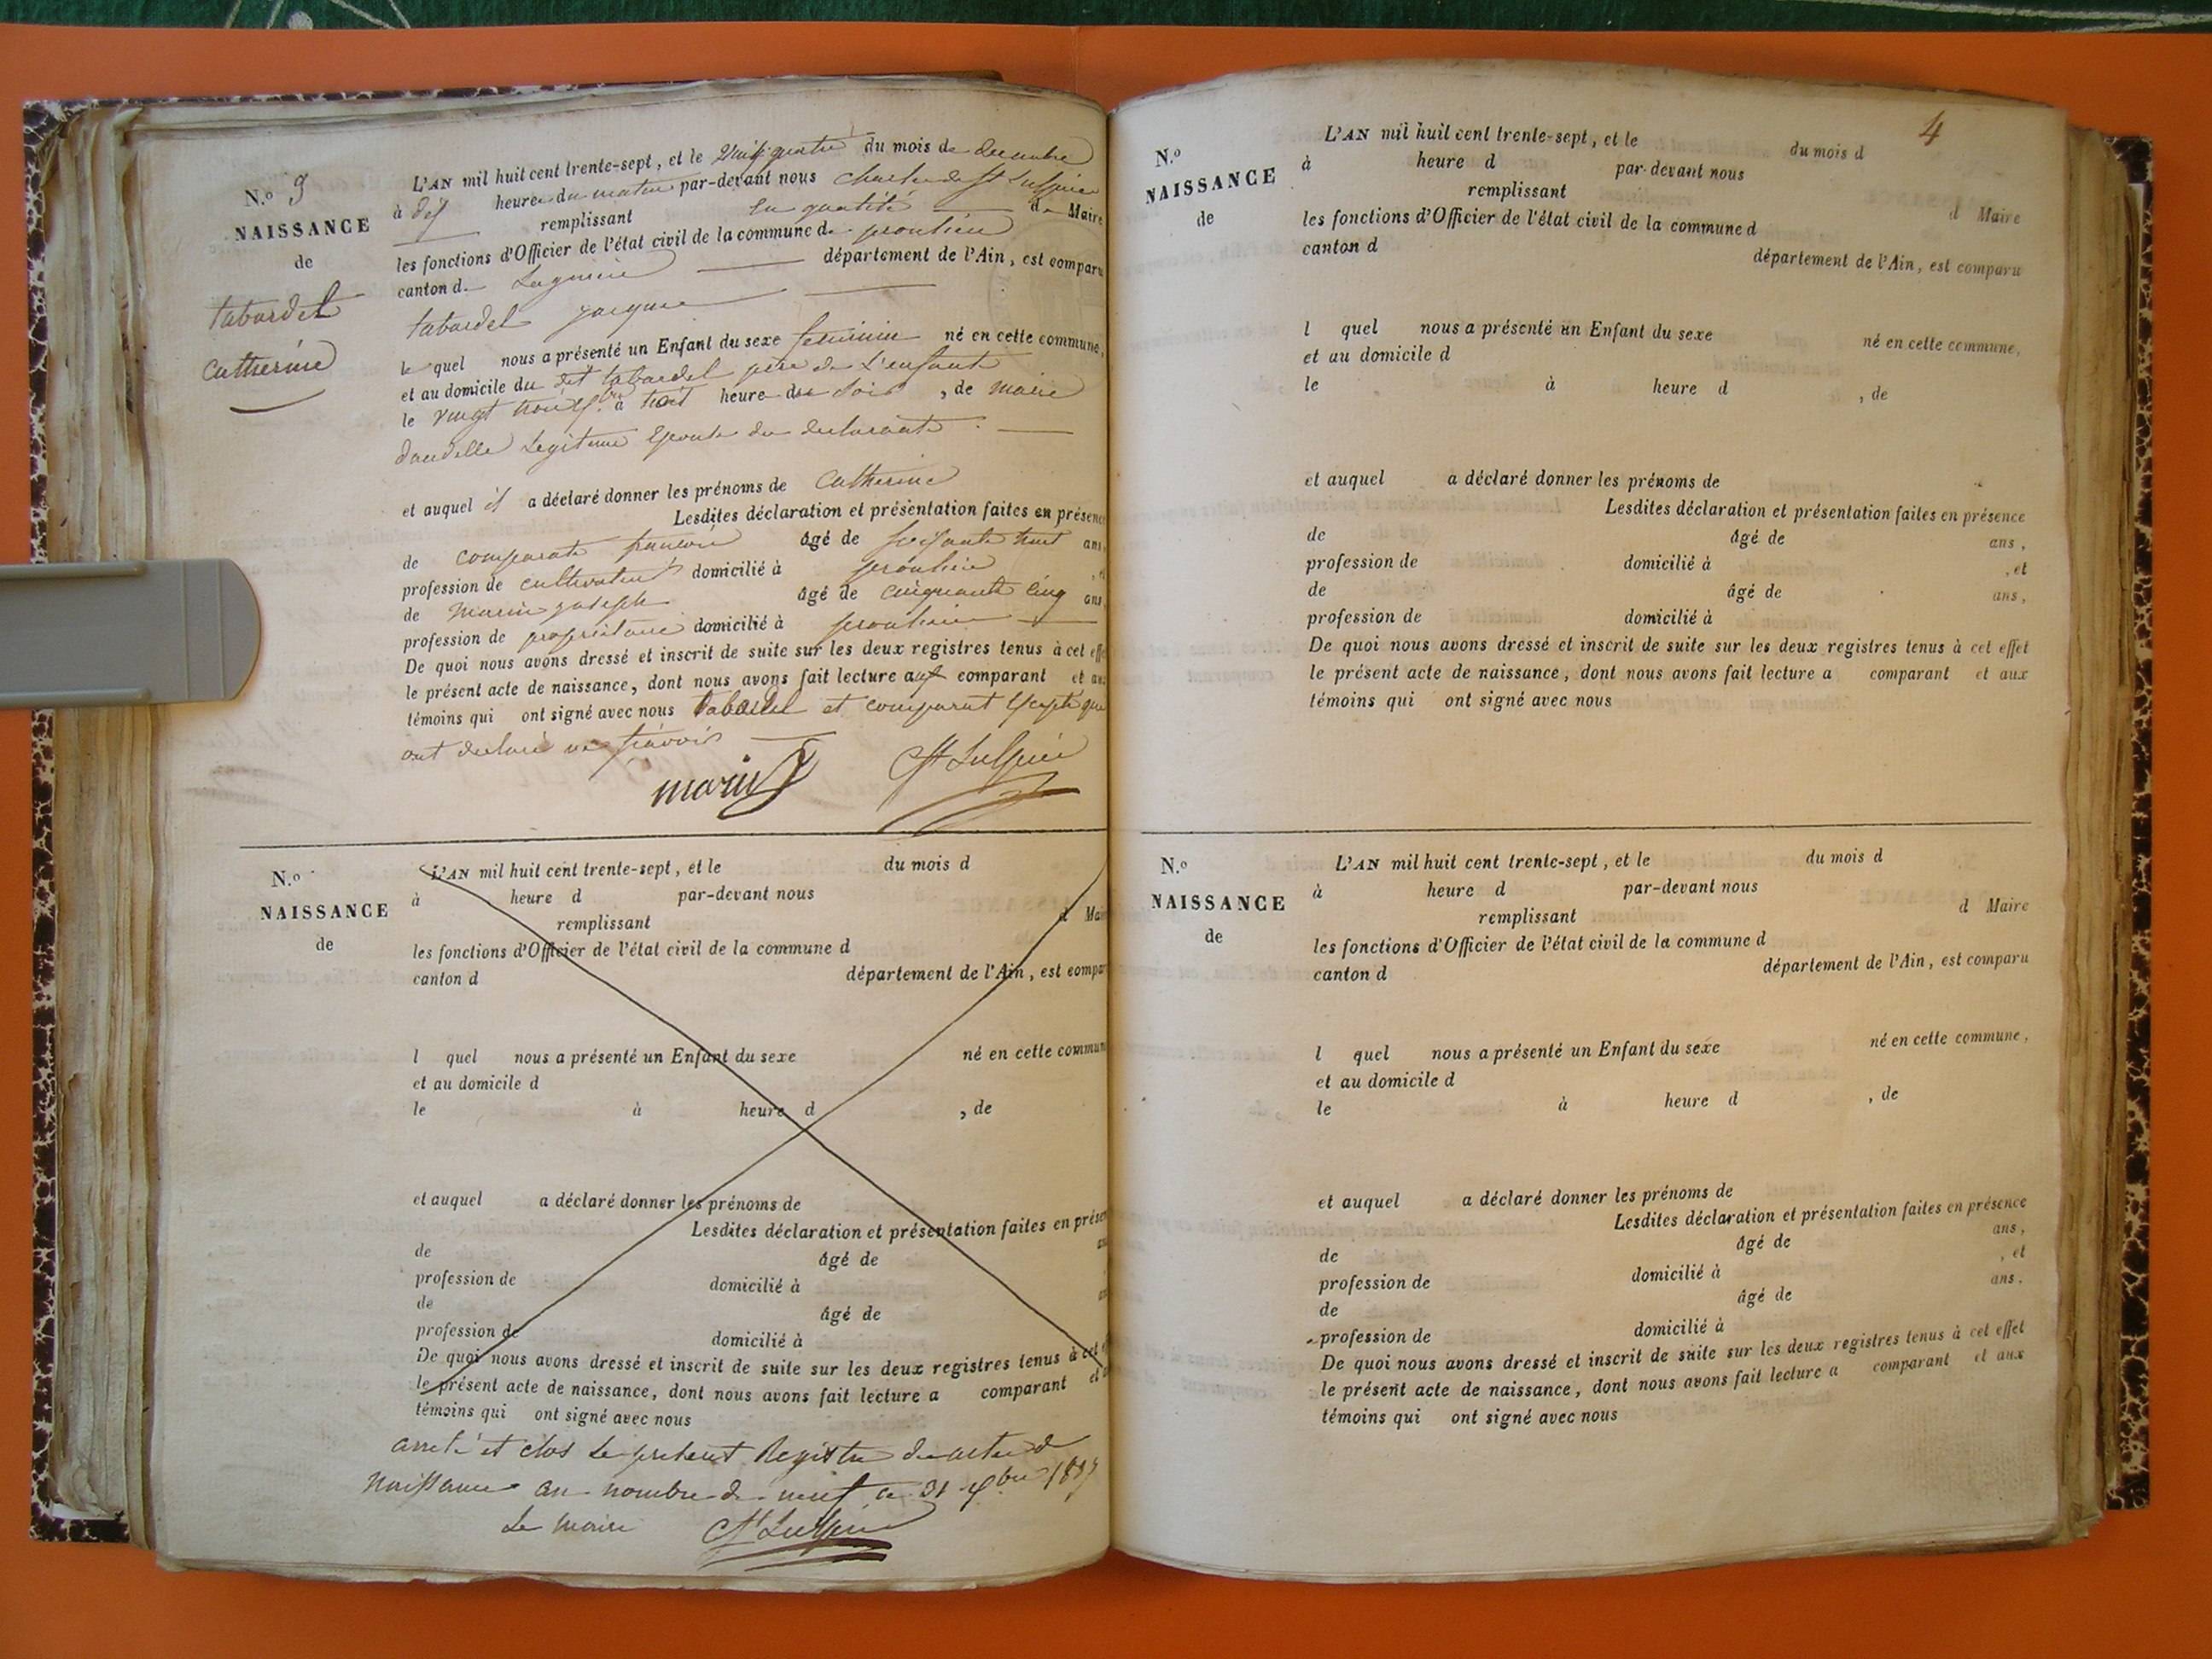 N.º 9
NAISSANCE
de
tabardel
catherine
L'AN mil huit cent trente-sept, et le vingt quatre du mois de decembre
à dix heure du matin par-devant nous charles de St Sulpice
remplissant en qualité de Maire
les fonctions d'Officier de l'état civil de la commune de proulieu
canton de Lagnieu département de l'Ain, est comparu
tabardel jacque
le quel nous a présenté un Enfant du sexe feminin né en cette commune,
et au domicile du dit tabardel père de L'enfant
le vingt trois à huit heure du soir, de marie
Legitime Epouse du declarant
et auquel il a déclaré donner les prénoms de Catherine
Lesdites déclaration et présentation faites en présence
de comparat françois âgé de soixante huit ans,
profession de cultivateur domicilié à proulieu, et
de Marin joseph âgé de cinquante cinq ans,
profession de propriétaire domicilié à proulieu
De quoi nous avons dressé et inscrit de suite sur les deux registres tenus à cet effet
le présent acte de naissance, dont nous avons fait lecture aux comparant et aux
témoins qui ont signé avec nous tabardel et comparat Excepté que
ont declaré ne sçavoir
marin St Sulpice
N.º
NAISSANCE
de
L'AN mil huit cent trente-sept, et le du mois d
à heure d par-devant nous
remplissant d Mai
les fonctions d'Officier de l'état civil de la commune d
canton d département de l'Ain, est compar
l quel nous a présenté un Enfant du sexe né en cette commun
et au domicile d
le à heure d , de
et auquel a déclaré donner les prénoms de
Lesdites déclaration et présentation faites en présen
de âgé de an
profession de domicilié à
de âgé de an
profession de domicilié à
De quoi nous avons dressé et inscrit de suite sur les deux registres tenus à cet
le présent acte de naissance, dont nous avons fait lecture a comparant et
témoins qui ont signé avec nous
arreté et clos Le present Registre des actes de
Naissance au nombre de neuf ce 31 Xbre 1837
Le Maire St Sulpice
4
N.º
NAISSANCE
de
L'AN mil huit cent trente-sept, et le du mois d
à heure d par-devant nous
remplissant d Maire
les fonctions d'Officier de l'état civil de la commune d
canton d département de l'Ain, est comparu
l quel nous a présenté un Enfant du sexe né en cette commune,
et au domicile d
le à heure d , de
et auquel a déclaré donner les prénoms de
Lesdites déclaration et présentation faites en présence
de âgé de ans,
profession de domicilié à , et
de âgé de ans,
profession de domicilié à
De quoi nous avons dressé et inscrit de suite sur les deux registres tenus à cet effet
le présent acte de naissance, dont nous avons fait lecture a comparant et aux
témoins qui ont signé avec nous
N.º
NAISSANCE
de
L'AN mil huit cent trente-sept, et le du mois d
à heure d par-devant nous
remplissant d Maire
les fonctions d'Officier de l'état civil de la commune d
canton d département de l'Ain, est comparu
l quel nous a présenté un Enfant du sexe né en cette commune,
et au domicile d
le à heure d , de
et auquel a déclaré donner les prénoms de
Lesdites déclaration et présentation faites en présence
de âgé de ans,
profession de domicilié à , et
de âgé de ans.
profession de domicilié à
De quoi nous avons dressé et inscrit de suite sur les deux registres tenus à cet effet
le présent acte de naissance, dont nous avons fait lecture a comparant et aux
témoins qui ont signé avec nous